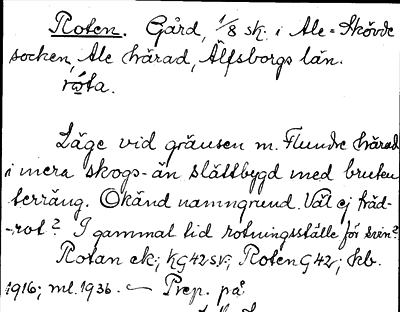 Roten. Gård, 1/8 sk. i Ale-Skövde
socken, Ale härad, Älfsborgs län.
Läge vid gränsen m. Flundre härad
i mera skogs- än slättbygd med bruten
terräng. Okänd namngrund. Väl ej träd-
-rot? I gammal tid rotningsställe för svin?
Rotan ek.; KG42 sv; Roten G42; kb.
1916; ml. 1936. — Prep. på